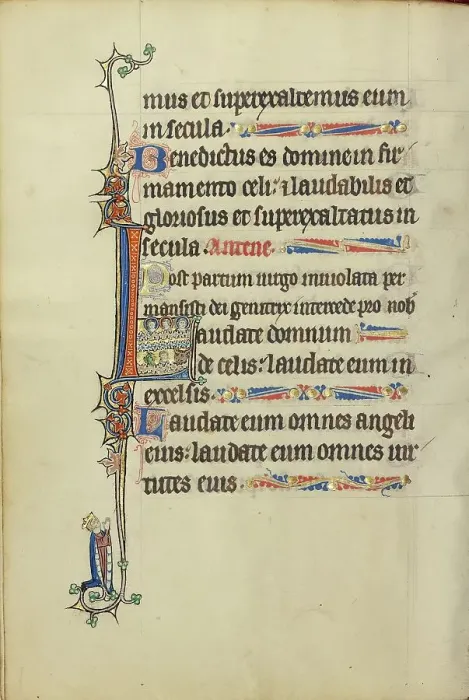 mus et superexaltemus eum
in secula.
Benedictus es domine in fir
mamento celi: ⁊ laudabilis et
gloriosus et superexaltatus in
secula. Antene.
Post partum uirgo inuiolata per
mansisti dei genitrix intercede pro nob
Laudate domnum
de celis: laudate eum in
excelsis.
Laudate eum omnes angeli
eius: laudate eum omnes uir
tutes eius.